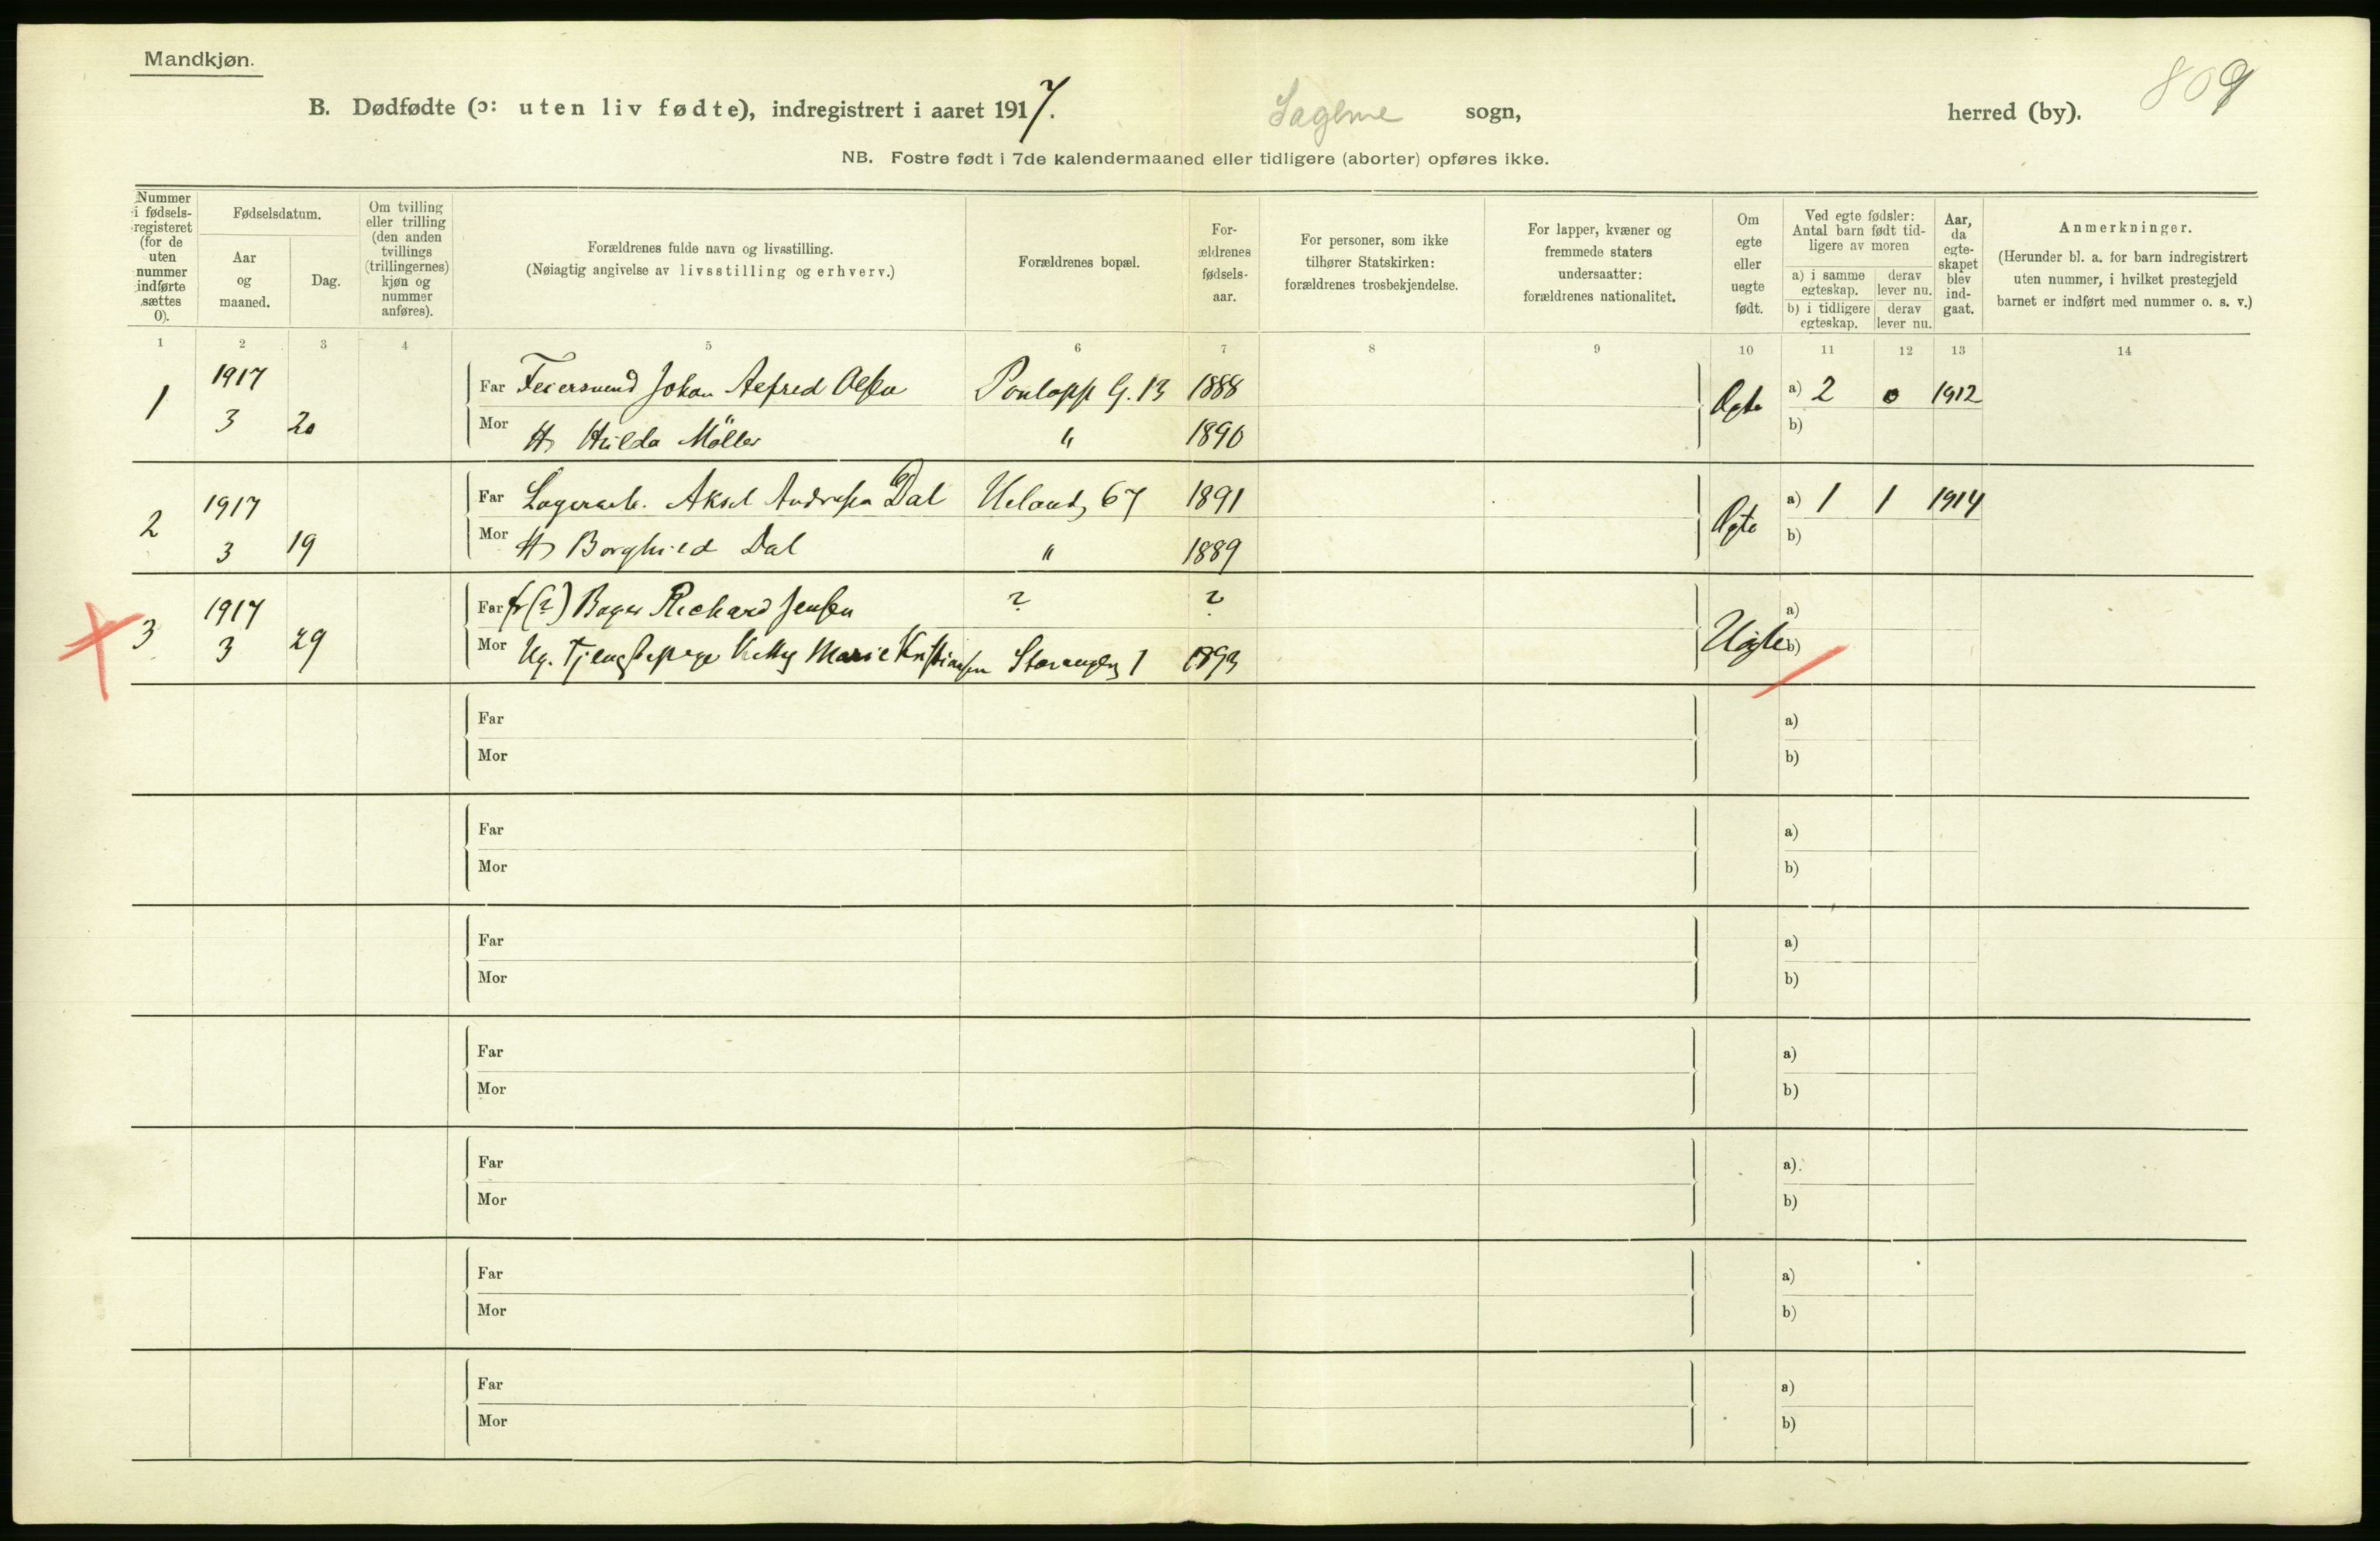 Mandkjøn.
809
B. Dødfødte (ɔ: uten liv fødte), indregistrert i aaret 1917. Sagene sogn, herred (by).
NB. Fostre født i 7de kalendermaaned eller tidligere (aborter) opføres ikke.
Nummer i fødsels-registeret (for de uten nummer indførte sættes 0).
Fødselsdatum.
Aar og maaned.
Dag.
Om tvilling eller trilling (den anden tvillings (trillingernes) kjøn og nummer anføres).
Forældrenes fulde navn og livsstilling.
(Nøiagtig angivelse av livsstilling og erhverv.)
Forældrenes bopæl.
For-ældrenes fødsels-aar.
For personer, som ikke tilhører Statskirken: forældrenes trosbekjendelse.
For lapper, kvæner og fremmede staters undersaatter: forældrenes nationalitet.
Om egte eller uegte født.
Ved egte fødsler: Antal barn født tid-ligere av moren
a) i samme egteskap. derav lever nu.
b) i tidligere egteskap. derav lever nu.
Aar, da egte-skapet blev ind-gaat.
Anmerkninger.
(Herunder bl. a. for barn indregistrert uten nummer, i hvilket prestegjeld barnet er indført med nummer o. s. v.)
1 2 3 4 5 6 7 8 9 10 11 12 13 14
1 1917 3 20
Far Feiersvend Johan Alfred Olsen G. 13 1888 Egte a) 2 0 1912
Mor H Hilda Møller " 1890 b)
2 1917 3 19
Far Lagerarb. Aksel Andresen Dal Uelands 67 1891 Egte a) 1 1 1914
Mor H Borghild Dal " 1889 b)
3 1917 3 29
Far fr(?) Bager Richard Jensen ? ? Uegte a)
Mor Ug. Tjenestepige Kitty Marie Kristiansen Stavangerg 1 1893 b)
Far a)
Mor b)
Far a)
Mor b)
Far a)
Mor b)
Far a)
Mor b)
Far a)
Mor b)
Far a)
Mor b)
Far a)
Mor b)